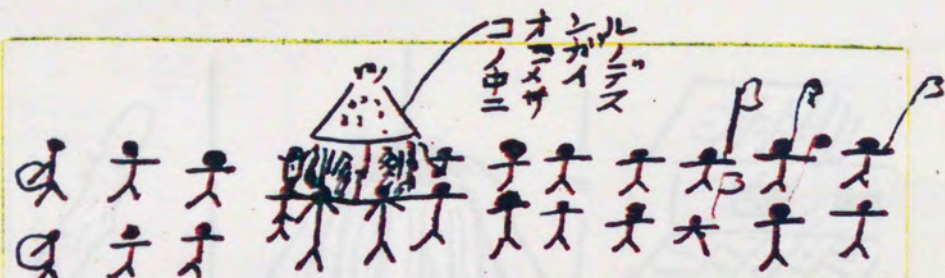 コノ中ニ
オヨメサ
ンガイ
ルノデス